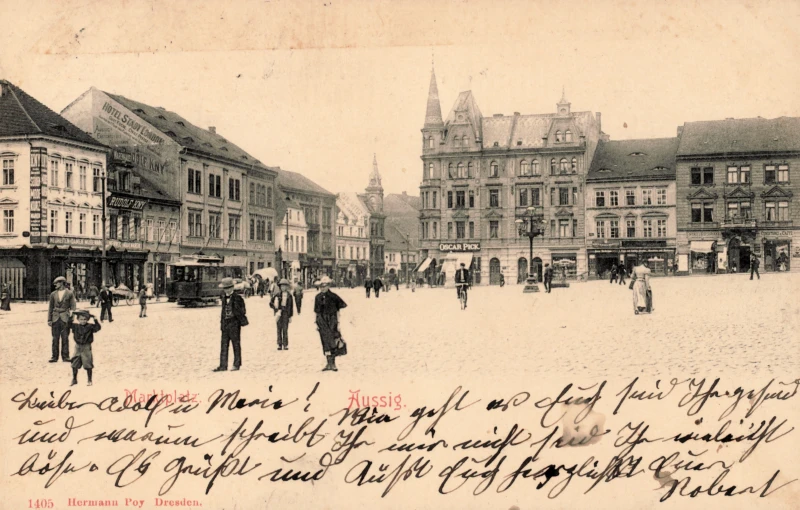 HOTEL STADT
RUDOLF KNY
OSCAR PICK
Marktplatz.
Aussig.
Lieber Adolf u Marie! Wie geht es Euch seid Ihr gesund
und warum schreibt Ihr mir nicht seid Ihr vieleicht
böse. Es Grüßt und Küßt Euch herzlichst Euer
Robert
1405 Hermann Poy Dresden.